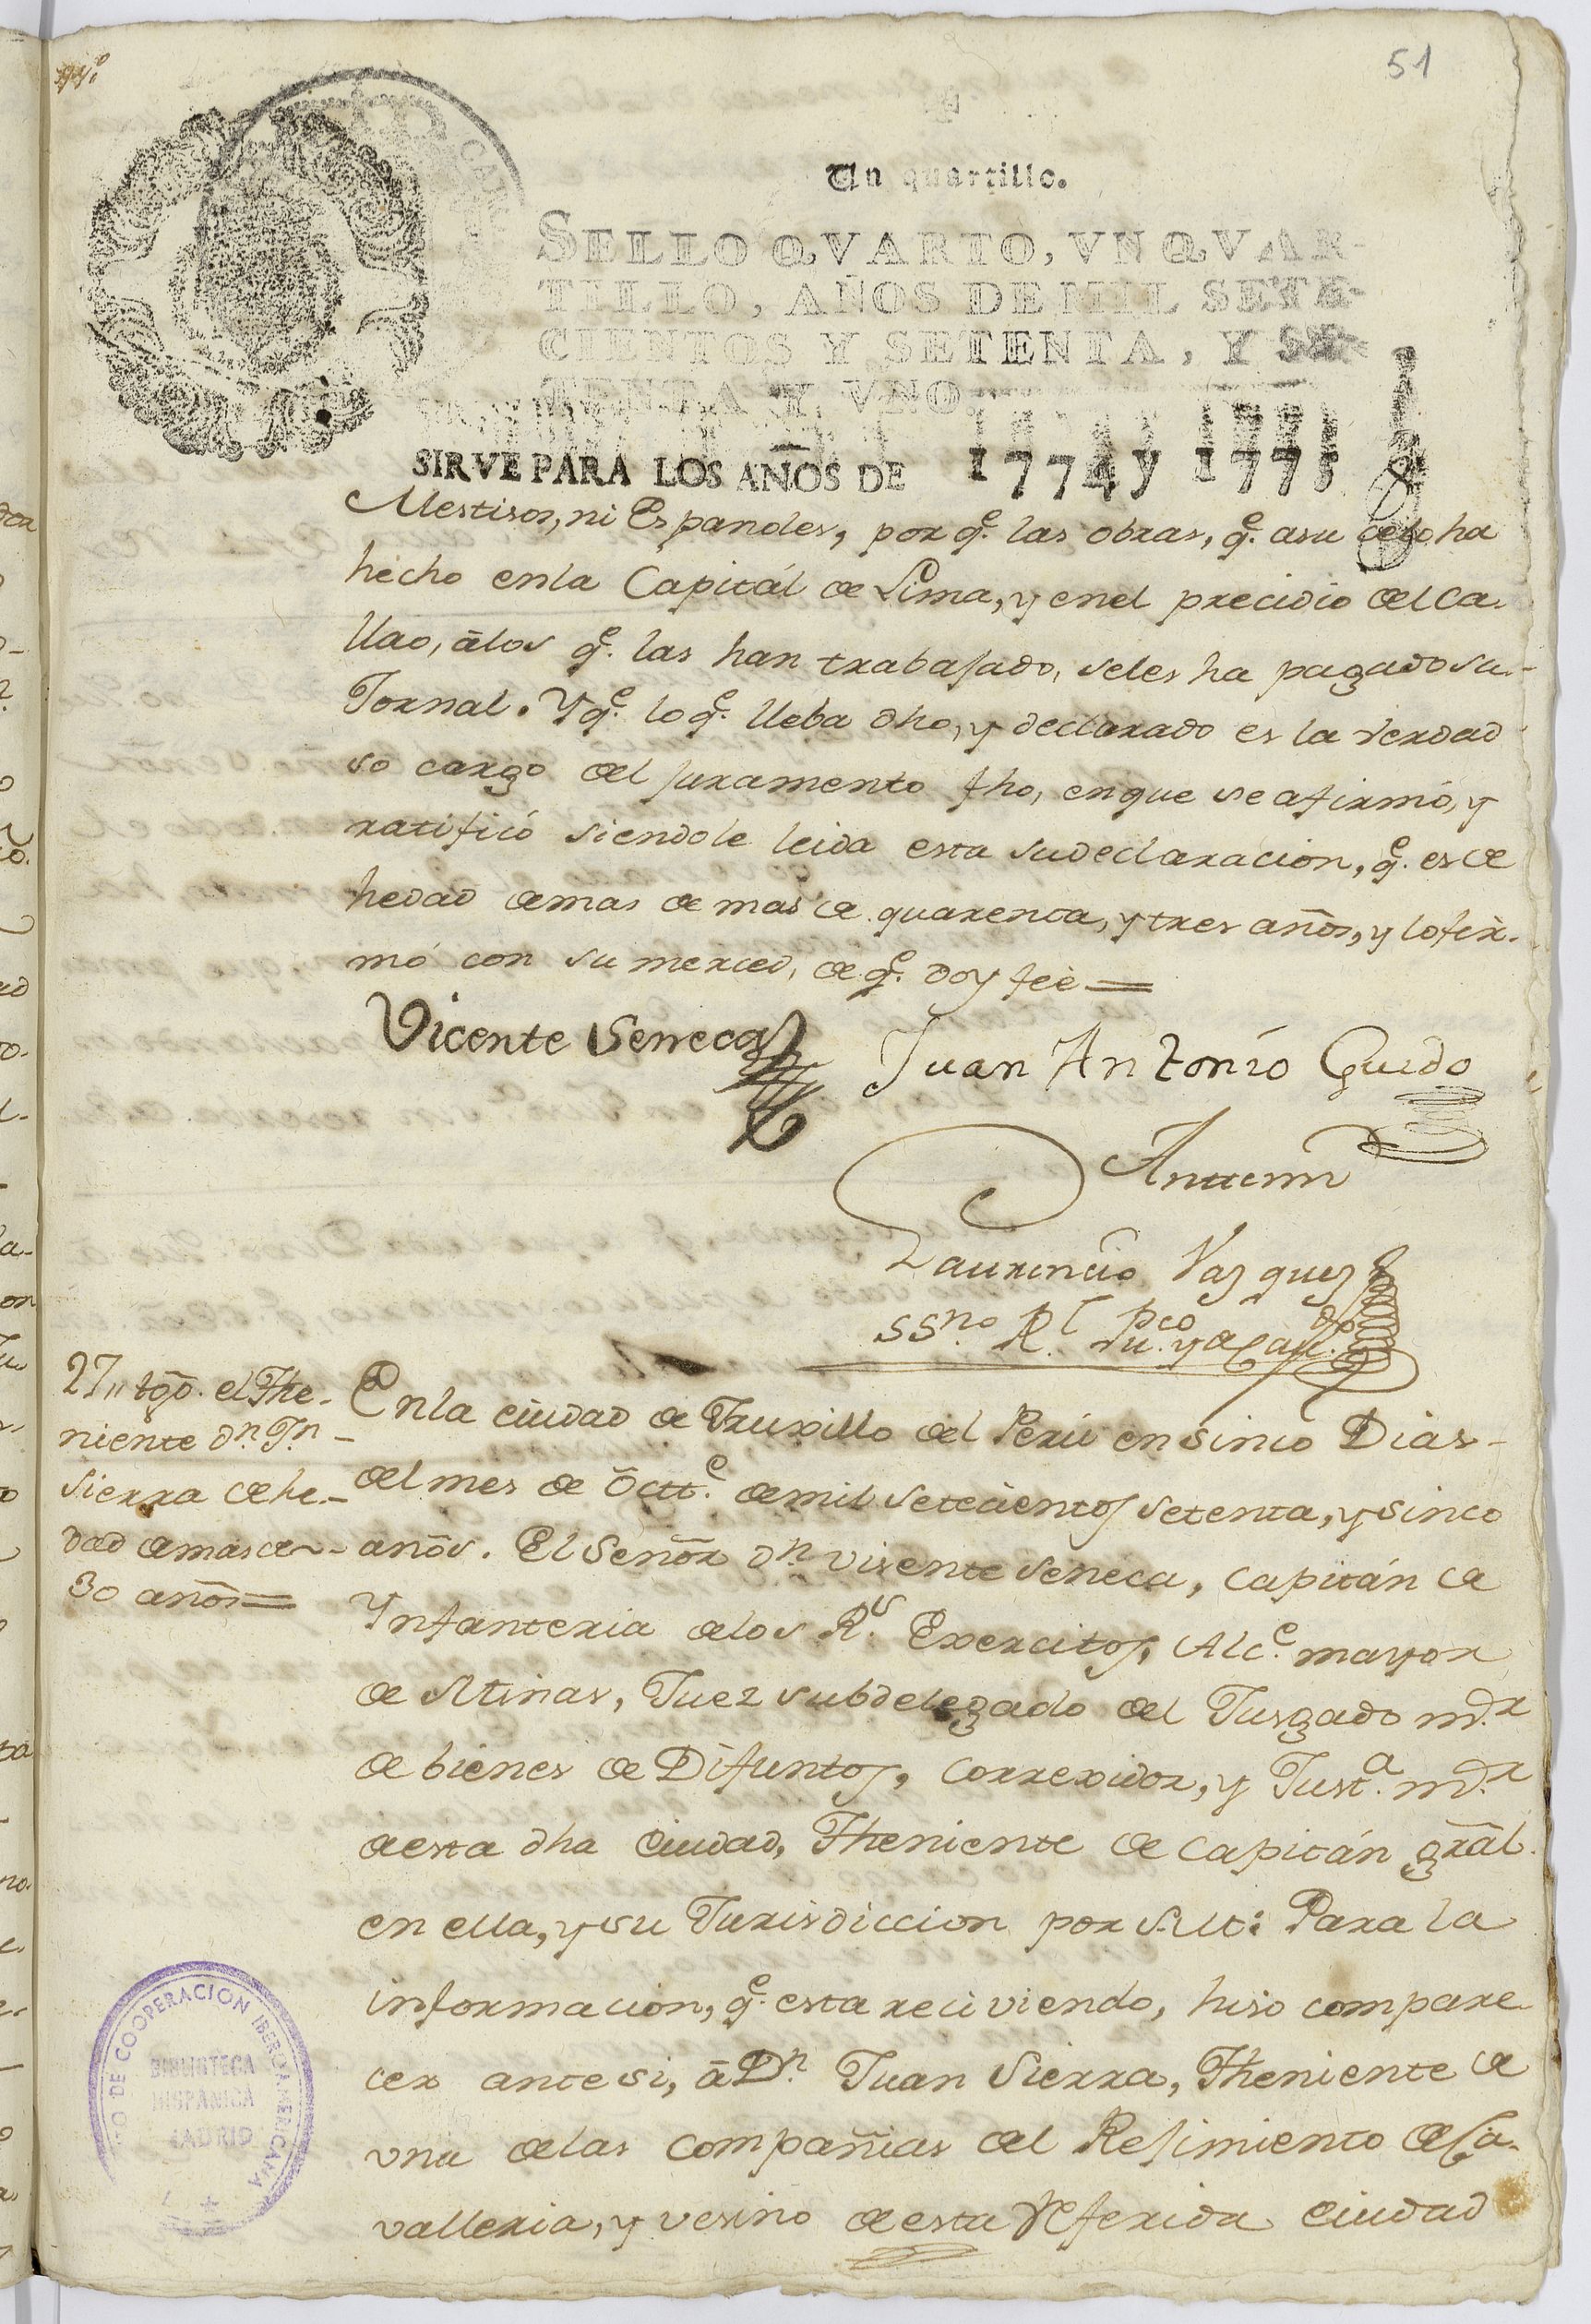 51
Un quartillo.
SELLO QVARTO, VN QVAR-
TILLO, AÑOS DE MIL SETE-
CIENTOS Y SETENTA, Y SE-
TENTA Y VNO.
SIRVE PARA LOS AÑOS DE 1774 y 1775
Mestisos, ni Españoles, por q.e las obras, q.e asu celo ha
hecho enla Capitál de Lima, y enel precidio del Ca-
llao, álos q.e las han trabajado, seles ha pagado su-
Jornal. Y q.e lo q.e lleba dho, y declarado es la verdad
so cargo del juramento fho, enque se afirmó, y
ratificó siendole leida esta sudeclaracion, q.e es de
hedad demas de mas de quarenta, y tres años, y lofir-
mó con su merced, de q.e doy feè =
Vicente Seneca
Juan Antonio Guido
Antemi
Laurencio Vazquez
SS.no R.l Pu.co y de Cav.do
27,, tgo. el The-
niente Dn. Jn.
Sierra de he-
dad demas de
30 años =
Enla ciudad de Truxillo del Perú en sinco Dias-
del mes de Octt.e demil setecientos setenta, y sinco
años. El Señor Dn. Visente Seneca, Capitán de
Ynfanteria delos R.s Exercitos, Alc.e mayor
de Minas, Juez subdelegado del Jusgado m.or
de bienes de Difuntos, Correxidor, y Just.a m.or
deesta dha Ciudad, Theniente de Capitán grál.
en ella, y su Jurisdiccion por S.M.: Para la
informacion, q.e esta reciviendo, hiso compare-
cer antesi, á Dn. Juan Sierra, Theniente de
una delas Compañias del Rejimiento de Ca-
valleria, y vesino deesta Referida Ciudad
DE COOPERACION IBEROAMERICANA
BIBLIOTECA
HISPANICA
MADRID